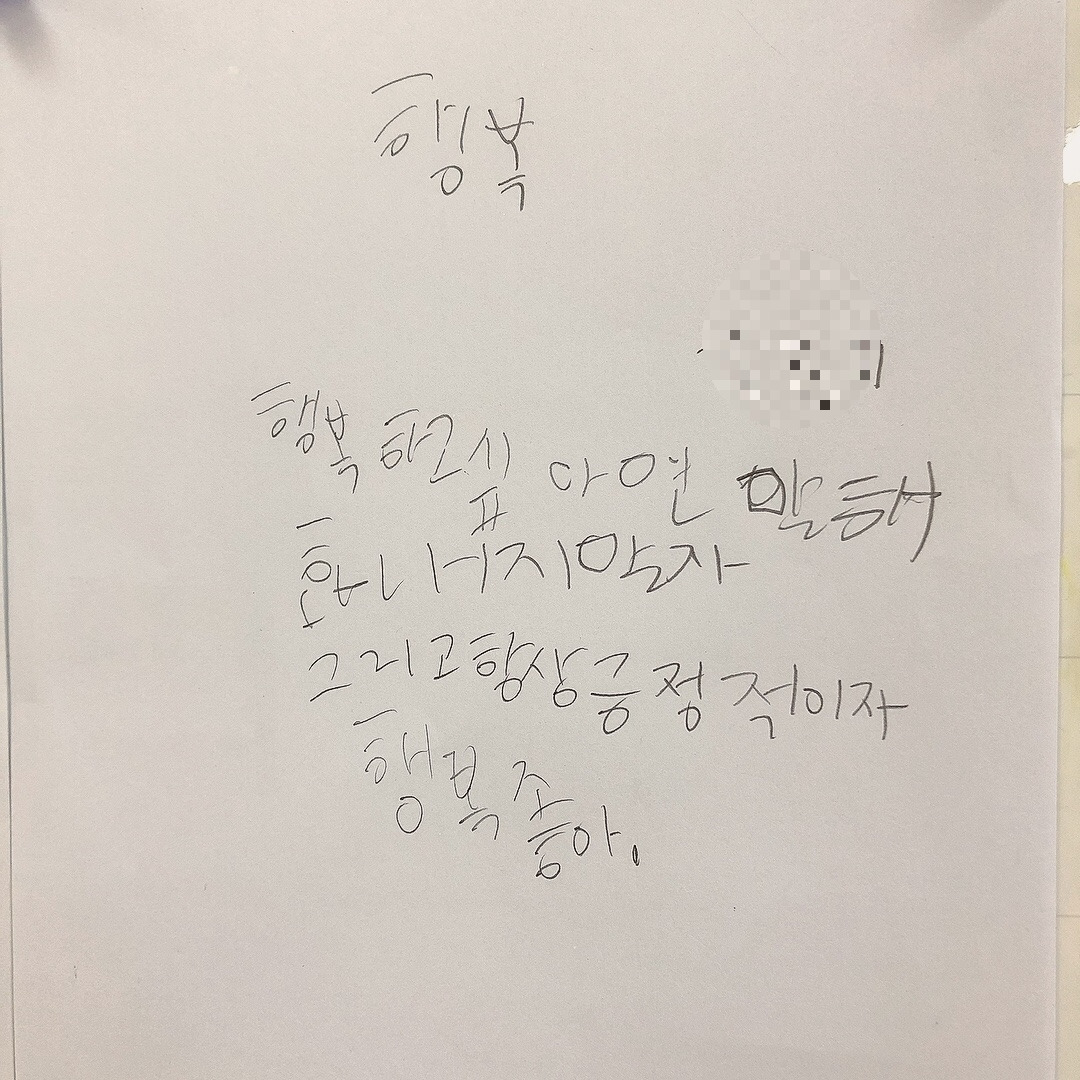 행복
행복 하고싶 아면 말해
화나 내지말자
그리고 항상 긍정적이자
행복 좋아.